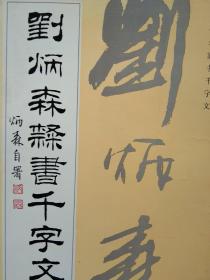 劉炳森隸書千字文
炳森自署
劉炳森